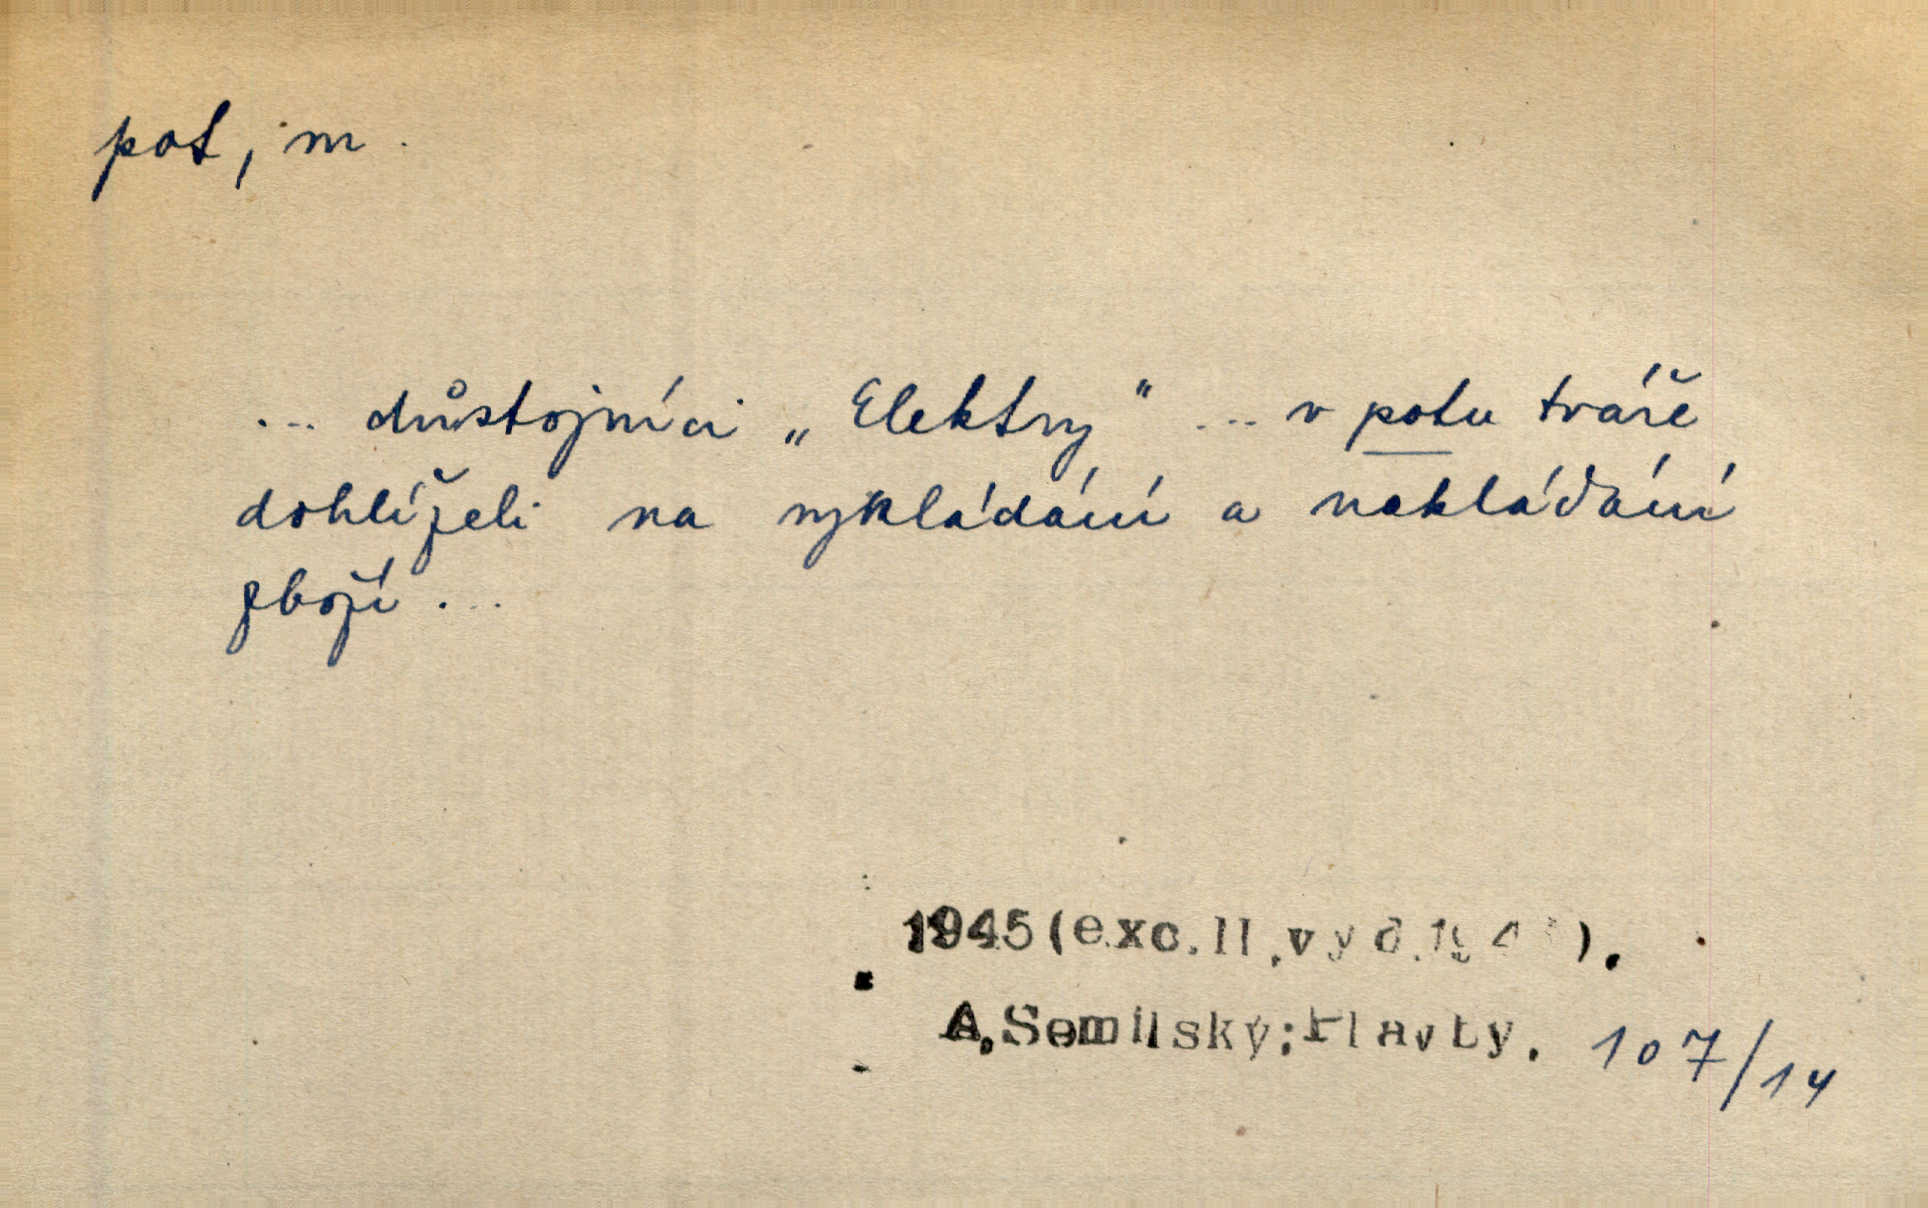 pot, m.
... důstojníci „Elektry" ... v potu tváře
dohlíželi na vykládání a nakládání
zboží ...
1945 (exc. II. vyd.
A. Semilský: Plavby. 107/14